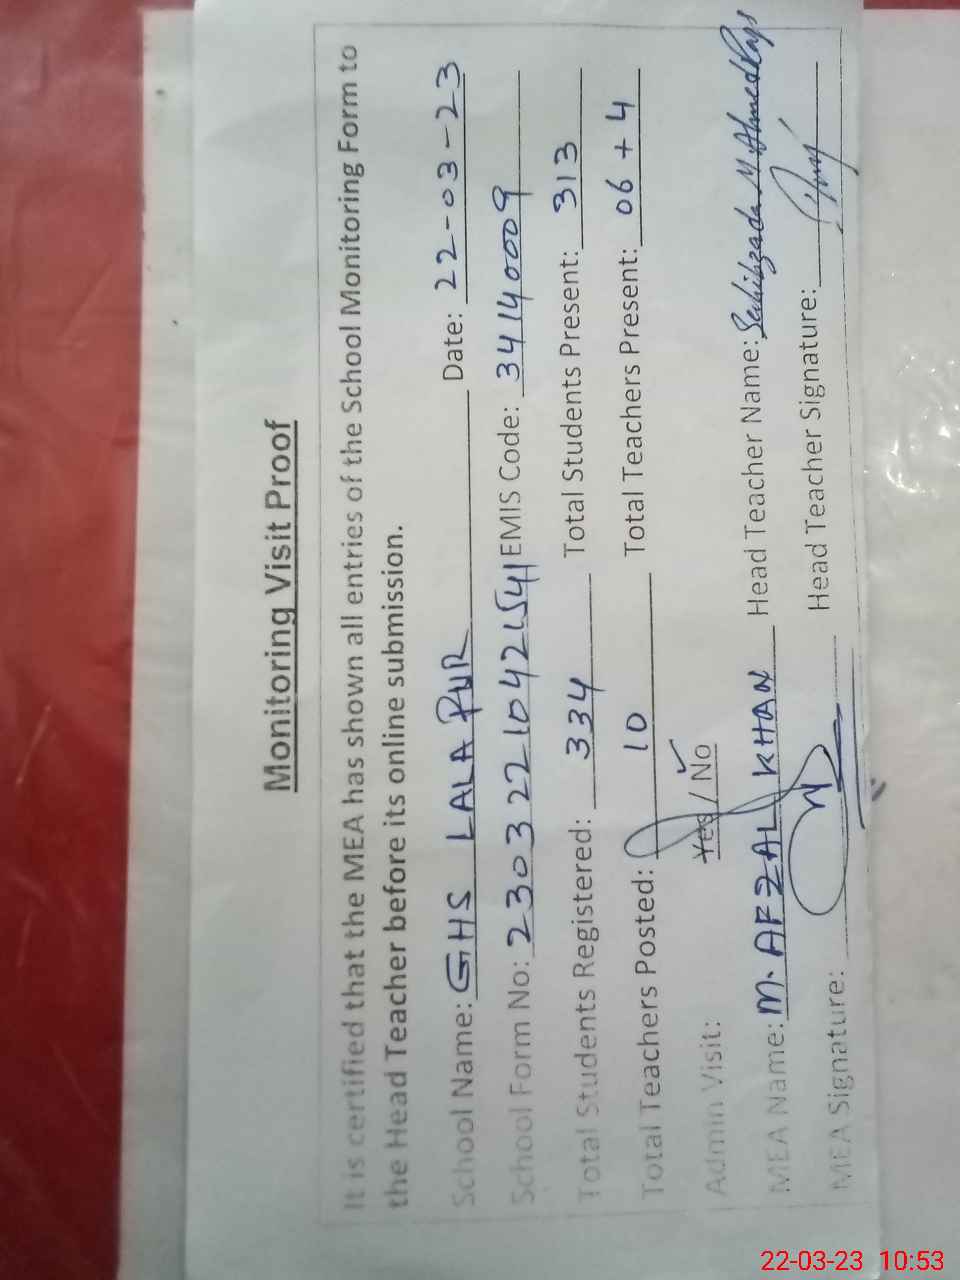 Monitoring Visit Proof
It is certified that the MEA has shown all entries of the School Monitoring Form to
the Head Teacher before its online submission.
School Name: GHS LALA PUR Date: 22-03-23
School Form No: 230322104421541 EMIS Code: 34140009
Total Students Registered: 334 Total Students Present: 313
Total Teachers Posted: 10 Total Teachers Present: 06 + 4
Admin Visit: Yes / No ✓
MEA Name: M. AFZAL KHAN Head Teacher Name: Sahibzada M Ahmed
MEA Signature: Head Teacher Signature:
22-03-23 10:53